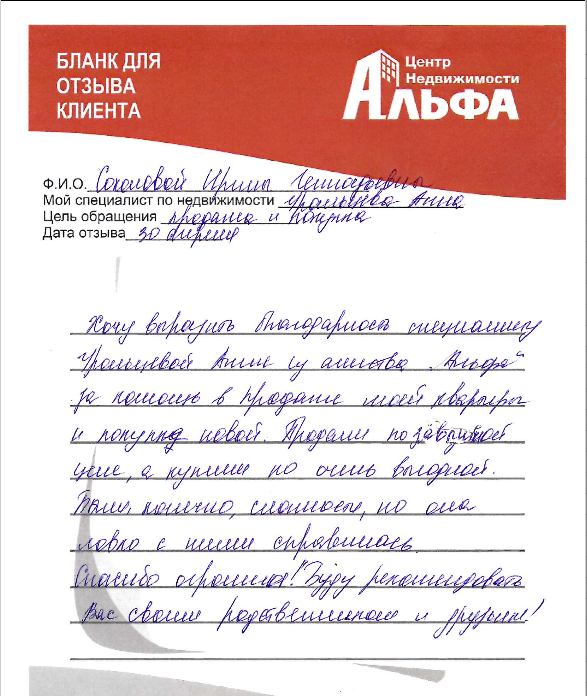 БЛАНК ДЛЯ
ОТЗЫВА
КЛИЕНТА
Центр
Недвижимости
АЛЬФА
Ф.И.О. Соколовой Ирины Геннадьевны
Мой специалист по недвижимости Уральцева Анна
Цель обращения продажа и покупка
Дата отзыва 30 апреля
Хочу выразить благодарность специалисту
Уральцевой Анне из агенства „Альфа"
за помощь в продаже моей квартиры
и покупке новой. Продали по завышенной
цене, а купили по очень выгодной.
Были, конечно, сложности, но она
ловко с ними справилась.
Спасибо огромное! Буду рекомендовать
Вас своим родственникам и друзьям!